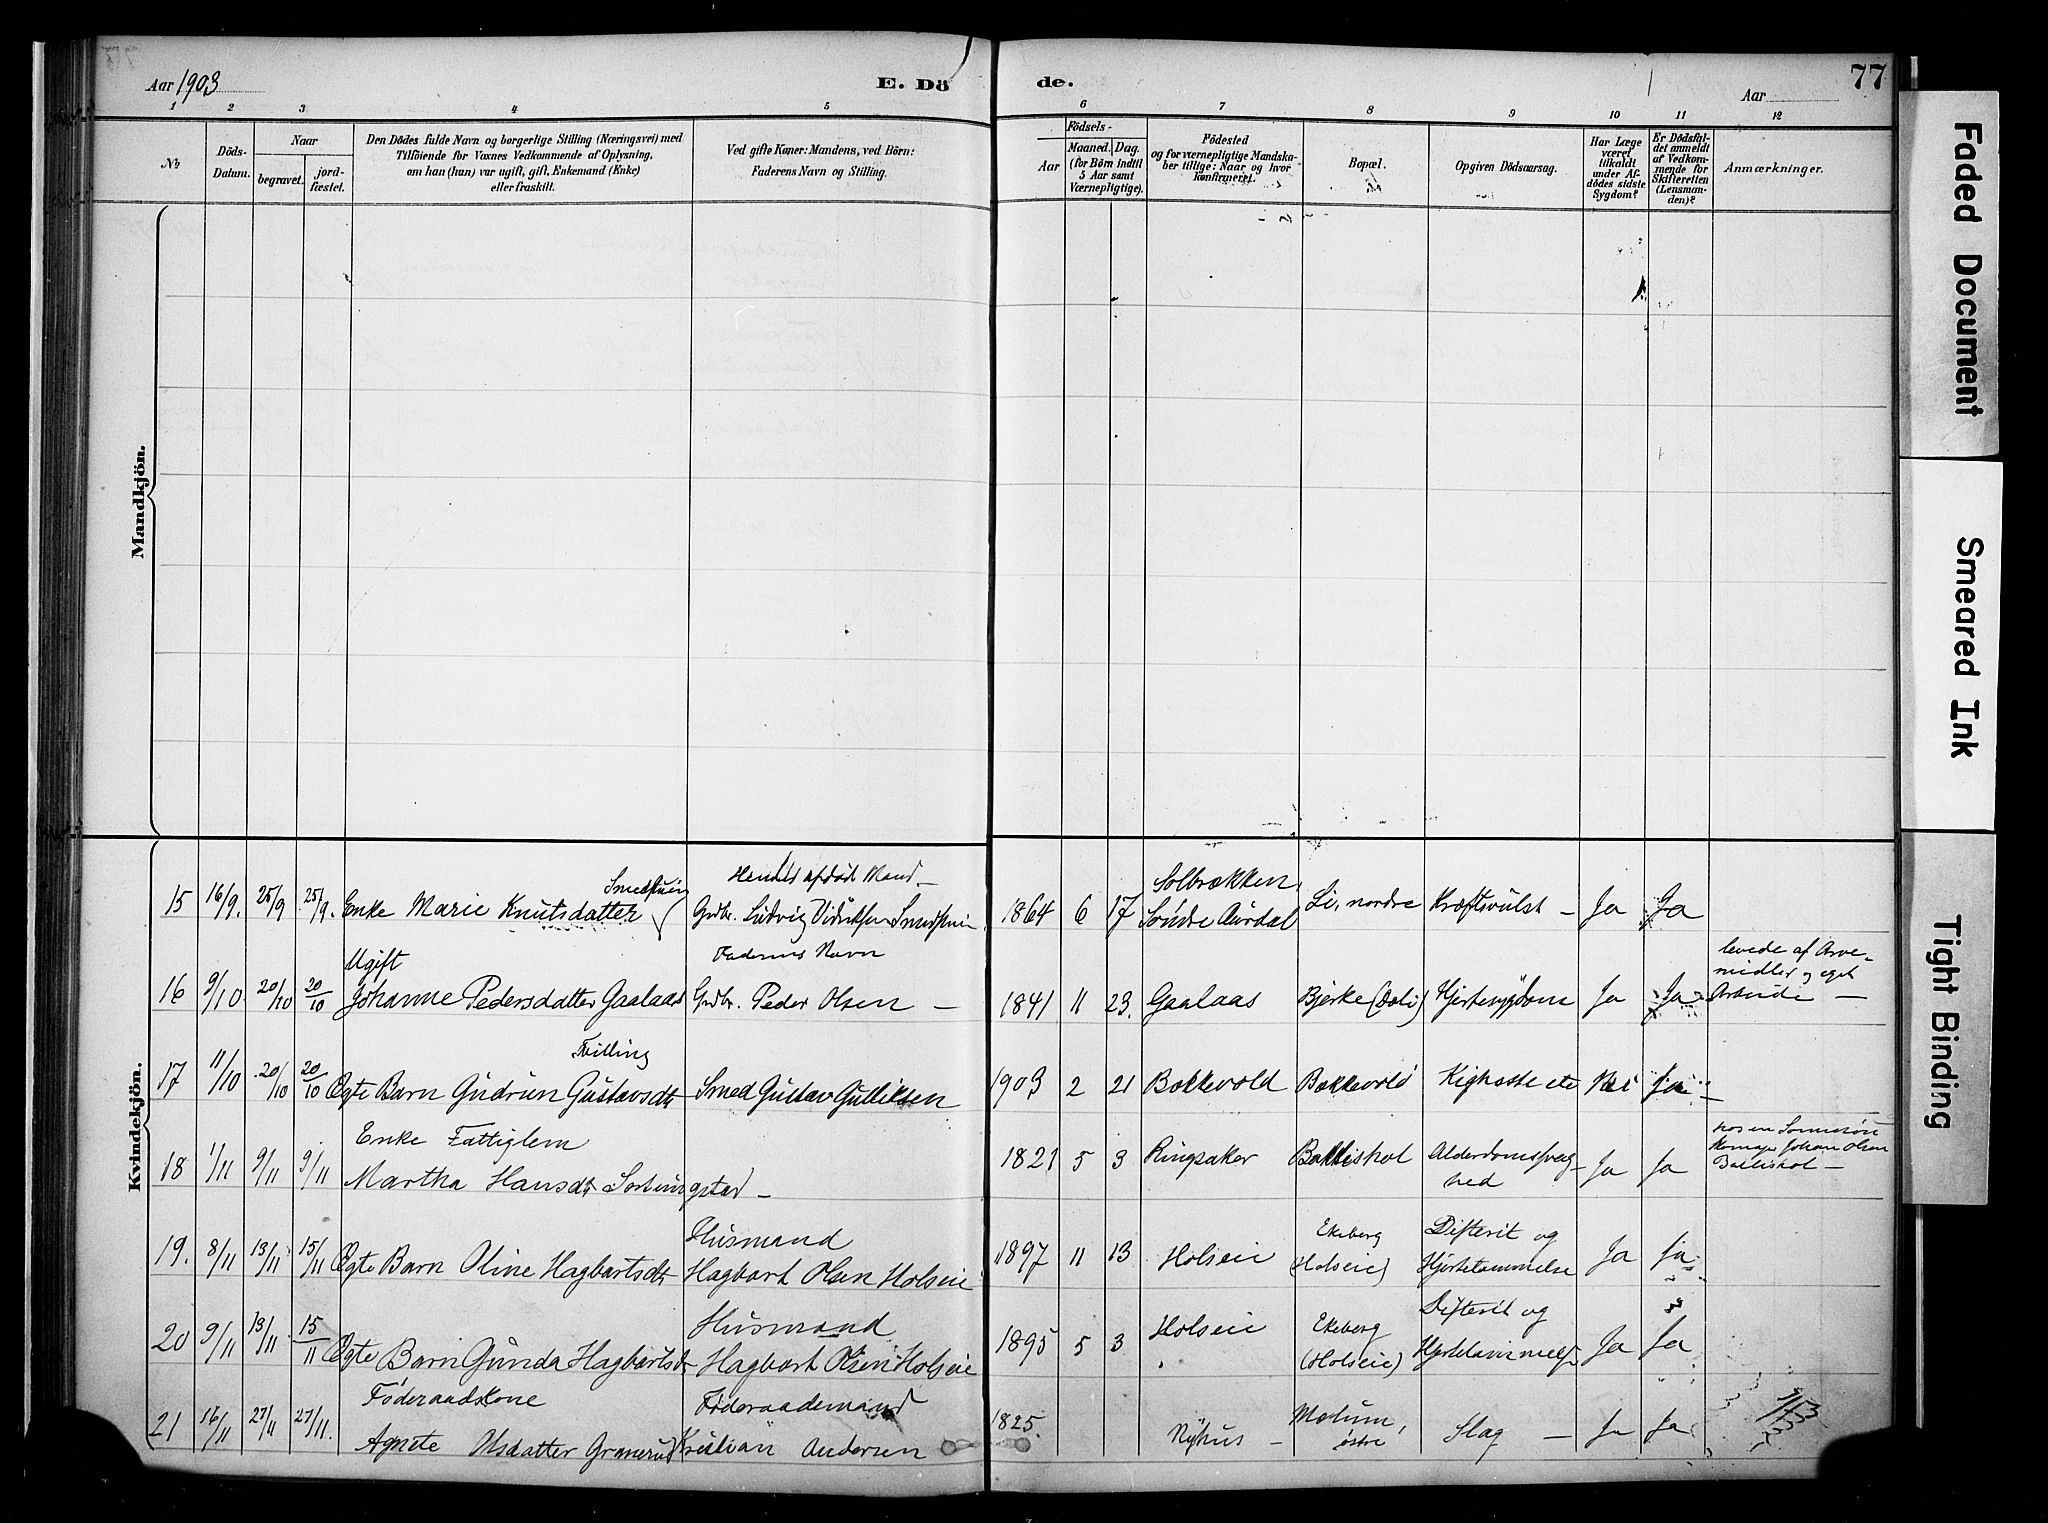 Aar 1903
E. Dö
de.
Aar
77
1 2 3 4 5 6 7 8 9 10 11 12
No
Döds-
Datum.
Naar
begravet.
jord-
fæstet.
Den Dödes fulde Navn og borgerlige Stilling (Næringsvei) med
Tilföiende for Voxnes Vedkommende af Oplysning,
om han (hun) var ugift, gift, Enkemand (Enke)
eller fraskilt.
Ved gifte Koner: Mandens, ved Börn:
Faderens Navn og Stilling.
Födsels-
Aar
Maaned. Dag.
(for Börn indtil
5 Aar samt
Værnepligtige).
Födested
og for værnepligtige Mandska-
ber tillige: Naar og hvor
Konfirmeret.
Bopæl.
Opgiven Dödsaarsag.
Har Læge
været
tilkaldt
under Af-
dödes sidste
Sygdom?
Er Dödsfal-
det anmeldt
af Vedkom-
mende for
Skifteretten
(Lensman-
den)?
Anmærkninger.
Mandkjön.
Kvindekjön.
15 16/9. 25/9 25/9. Enke Marie Knutsdatter
Gndbr. Ludvig
1864 6 17 Solbrækken,
Søndre Aurdal
Li, nordre Kræftsvulst – Ja Ja
16 9/10. 20/10 20/10 Ugift
Johanne Pedersdatter Gaalaas
Faderens Navn
Gndbr. Peder Olsen –
1841 11 23. Gaalaas Bjerke Hjertesygdom Ja Ja
levede af Arve-
midler og eget
Arbeide –
17 11/10 20/10 20/10 Tvilling
Ægte Barn Gudrun Gustavsdt Smed Gustav Gulliksen
1903 2 21 Bækkevold Bækkevold Kighoste etc Nei Ja –
18 1/11 9/11 9/11 Enke Fattiglem
Martha Hansdt –
1821 5 3 Ringsaker Balkishol Alderdomssvag-
hed
Ja Ja
hos en Sønnesøn
Johan Olsen
19. 8/11 13/11 15/11 Ægte Barn Oline Hagbartsdt
Husmand
Hagbart Olsen Holseie
1897 11 13 Holseie Ekeberg
(Holseie)
Difterit og
Hjertelammelse
Ja Ja
20 9/11 13/11 15/11 Ægte Barn Gunda Hagbartsdt
Husmand
Hagbart Olsen Holseie
1895 5 3 Holseie Ekeberg
(Holseie)
Difterit og
Hjertelammelse
Ja Ja
21 16/11 27/11 27/11. Føderaadskone
Agnete Olsdatter Granerud
Føderaadsmand
Kristian Andersen
1825. Nyhus – Mælum,
østre
Slag – Ja Ja
Faded Document
Smeared Ink
Tight Binding